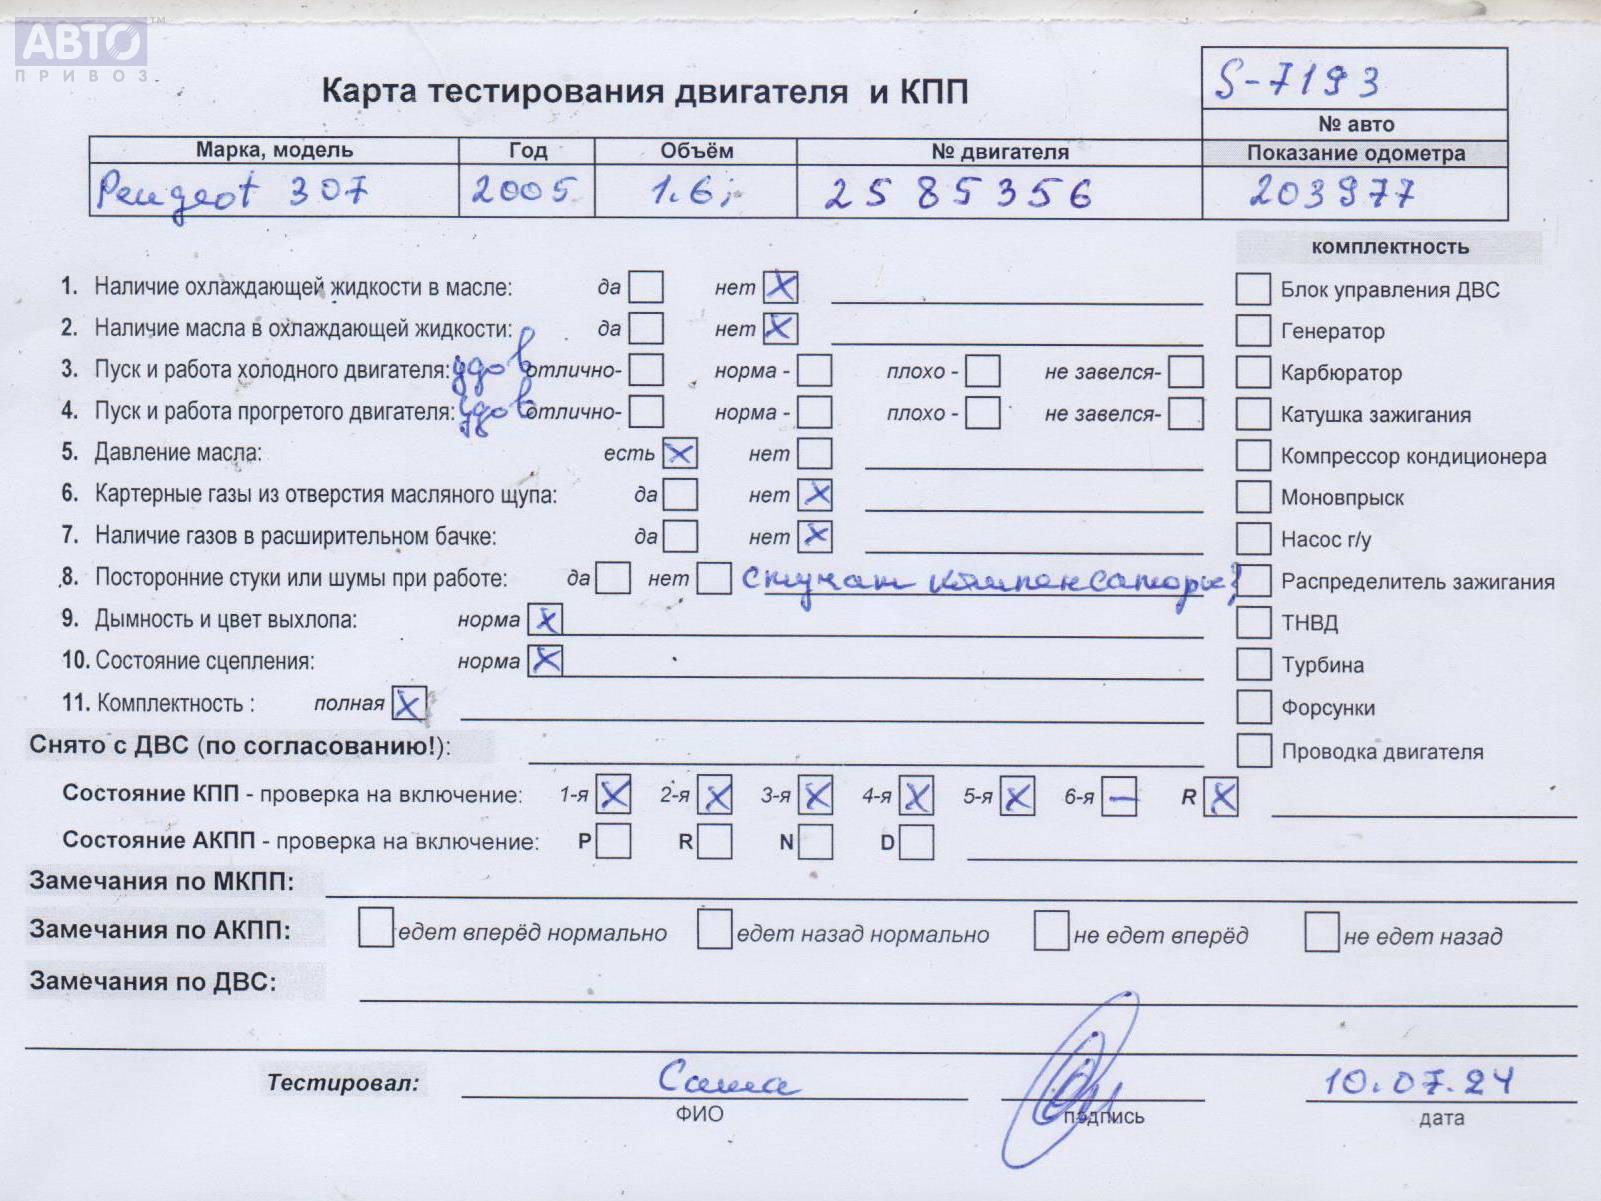 АВТО™
ПРИВОЗ
Карта тестирования двигателя и КПП
S-7193
№ авто
Марка, модель Год Объём № двигателя Показание одометра
Peugeot 307 2005 1.6; 2585356 203977
комплектность
1. Наличие охлаждающей жидкости в масле: да нет X Блок управления ДВС
2. Наличие масла в охлаждающей жидкости: да нет X Генератор
3. Пуск и работа холодного двигателя: удов отлично- норма - плохо - не завелся- Карбюратор
4. Пуск и работа прогретого двигателя: удов отлично- норма - плохо - не завелся- Катушка зажигания
5. Давление масла: есть X нет Компрессор кондиционера
6. Картерные газы из отверстия масляного щупа: да нет X Моновпрыск
7. Наличие газов в расширительном бачке: да нет X Насос г/у
8. Посторонние стуки или шумы при работе: да нет стучат компенсаторы; Распределитель зажигания
9. Дымность и цвет выхлопа: норма X ТНВД
10. Состояние сцепления: норма X Турбина
11. Комплектность : полная X Форсунки
Снято с ДВС (по согласованию!): Проводка двигателя
Состояние КПП - проверка на включение: 1-я X 2-я X 3-я X 4-я X 5-я X 6-я — R X
Состояние АКПП - проверка на включение: P R N D
Замечания по МКПП:
Замечания по АКПП: едет вперёд нормально едет назад нормально не едет вперёд не едет назад
Замечания по ДВС:
Тестировал: Саша 10.07.24
ФИО подпись дата